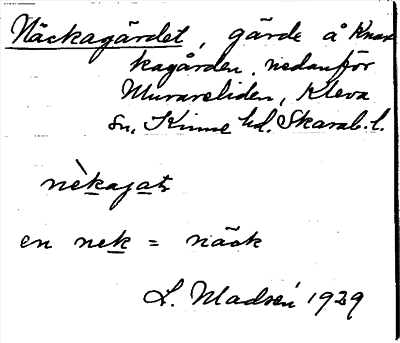 Näckagärdet, gärde å Knar
kagården. nedanför
Murareliden, Kleva
sn, Kinne hd. Skarab. l.
nèkajat
en nek = näck
L. Madsén 1929